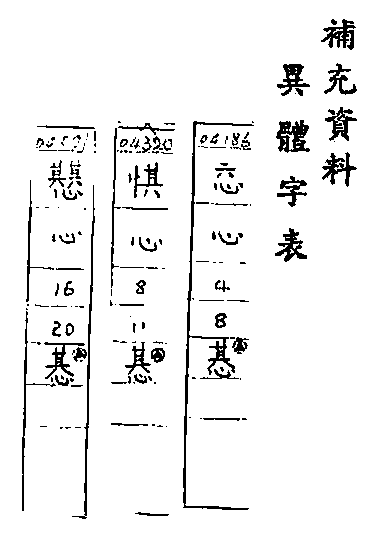 補充資料
異體字表
04186
心
4
8
惎
04320
心
8
11
惎
心
16
20
惎